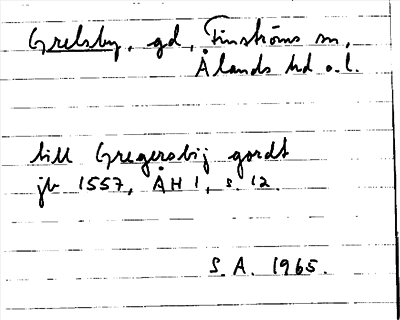 Grelsby, gd, Finströms sn,
Ålands hd o. l.
till Gregersbij gordt
jb 1557, ÅH 1, s. 12.
S. A. 1965.